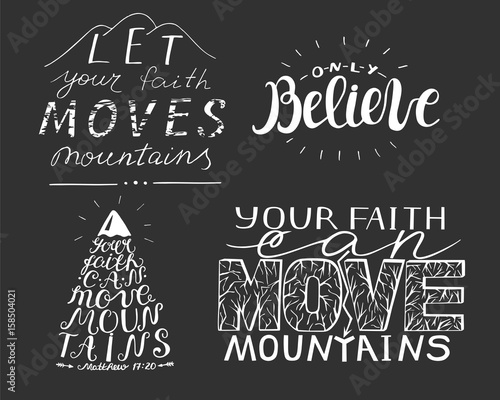 LET
your faith
MOVES
mountains
O-N-L-Y
Believe
your
faith
CAN
move
MOUN
TAINS
Matthew 17:20
YOUR FAITH
can
MOVE
MOUNTAINS
Adobe Stock
158504021